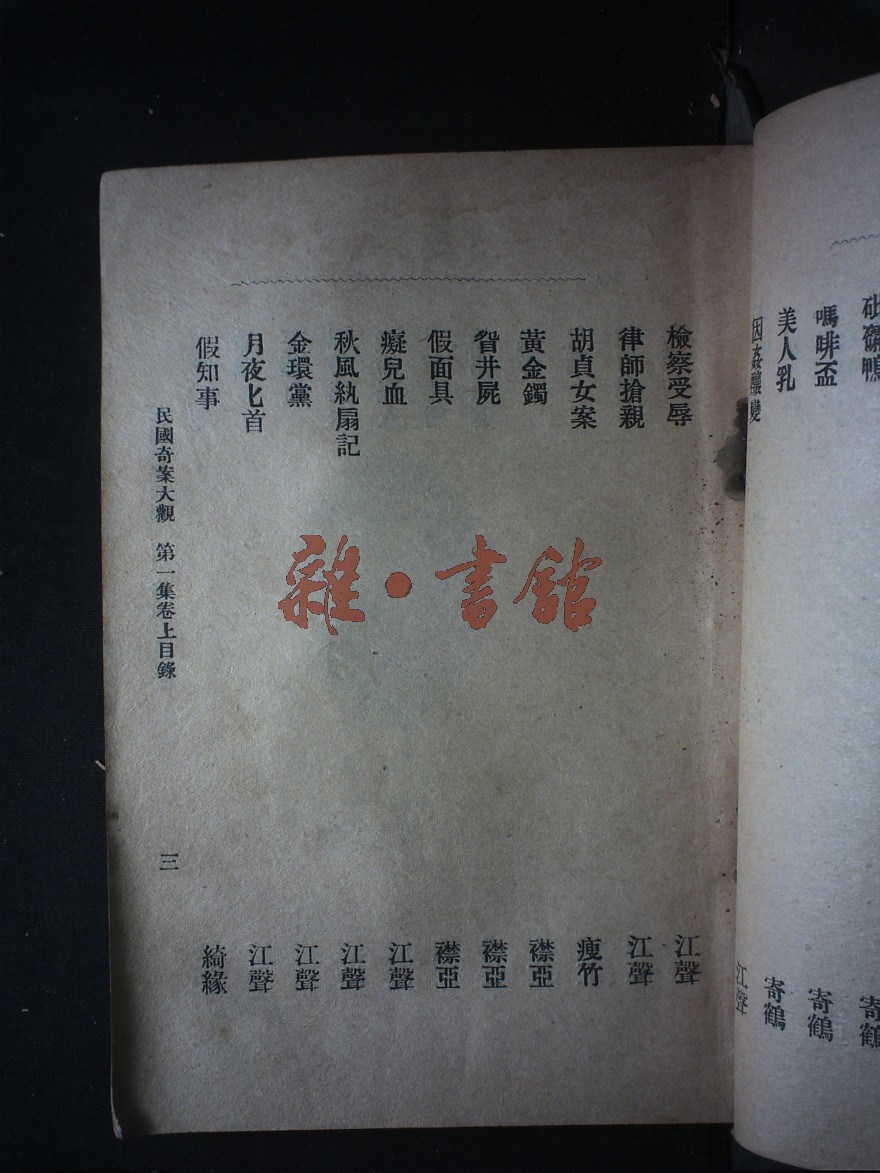 寄鶴
嗎啡盃
寄鶴
美人乳
寄鶴
因姦釀變
江聲
檢察受辱
江聲
律師搶親
江聲
胡貞女案
瘦竹
黃金鐲
襟亞
眢井屍
襟亞
假面具
襟亞
癡兒血
江聲
秋風紈扇記
江聲
金環黨
江聲
月夜匕首
江聲
假知事
綺緣
民國奇案大觀 第一集卷上目錄
三
雜·書館